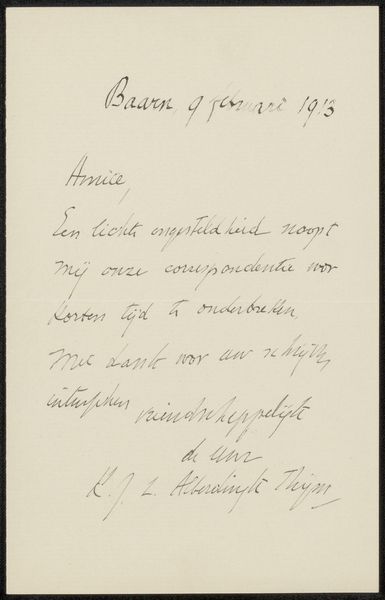 Baarn, 9 februari 1913
Amice,
Een lichte ongesteldheid noopt
mij onze correspondentie voor
korten tijd te onderbreken.
Met dank voor uw schrijven
intusschen vriendschappelijk
de uwe
K. J. L. Alberdingk Thijm